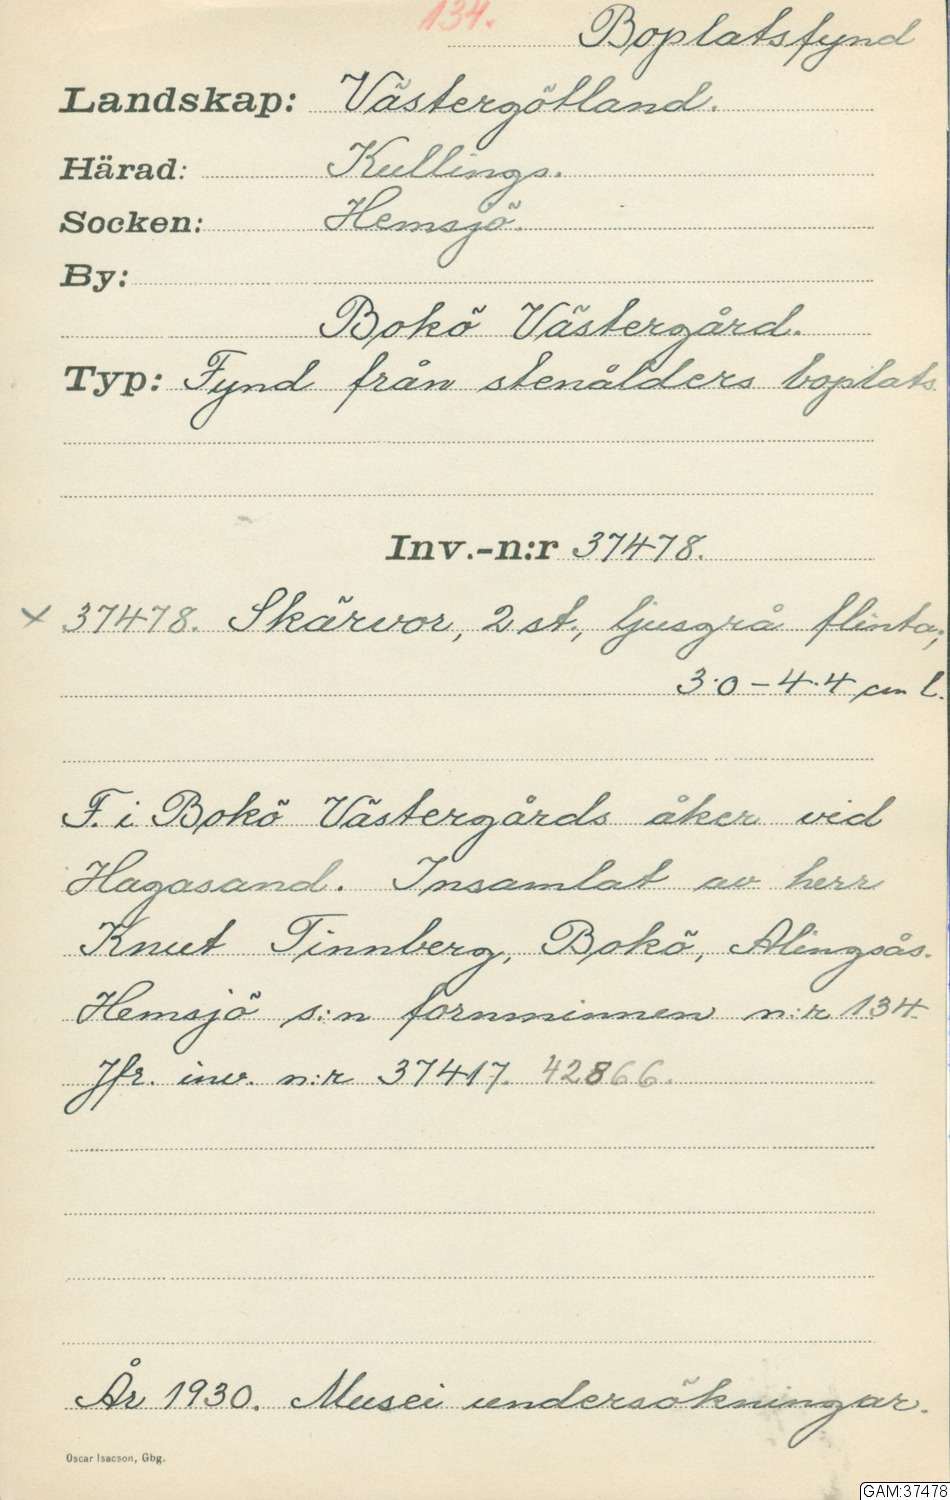 134.
Boplatsfynd
Landskap: Västergötland.
Härad: Kullings.
Socken: Hemsjö.
By:
Bokö Västergård.
Typ: Fynd från stenålders boplats
Inv.-n:r 37478.
× 37478. Skärvor, 2 st., ljusgrå flinta;
3.0 – 4.4 cm l.
F. i Bokö Västergårds åker vid
Hagasand. Insamlat av herr
Knut Tinnberg, Bokö, Alingsås.
Hemsjö s:n fornminnen n:r 134.
Jfr. inv. n:r 37417. 42866.
År 1930. Musei undersökningar.
Oscar Isacson, Gbg.
GAM:37478